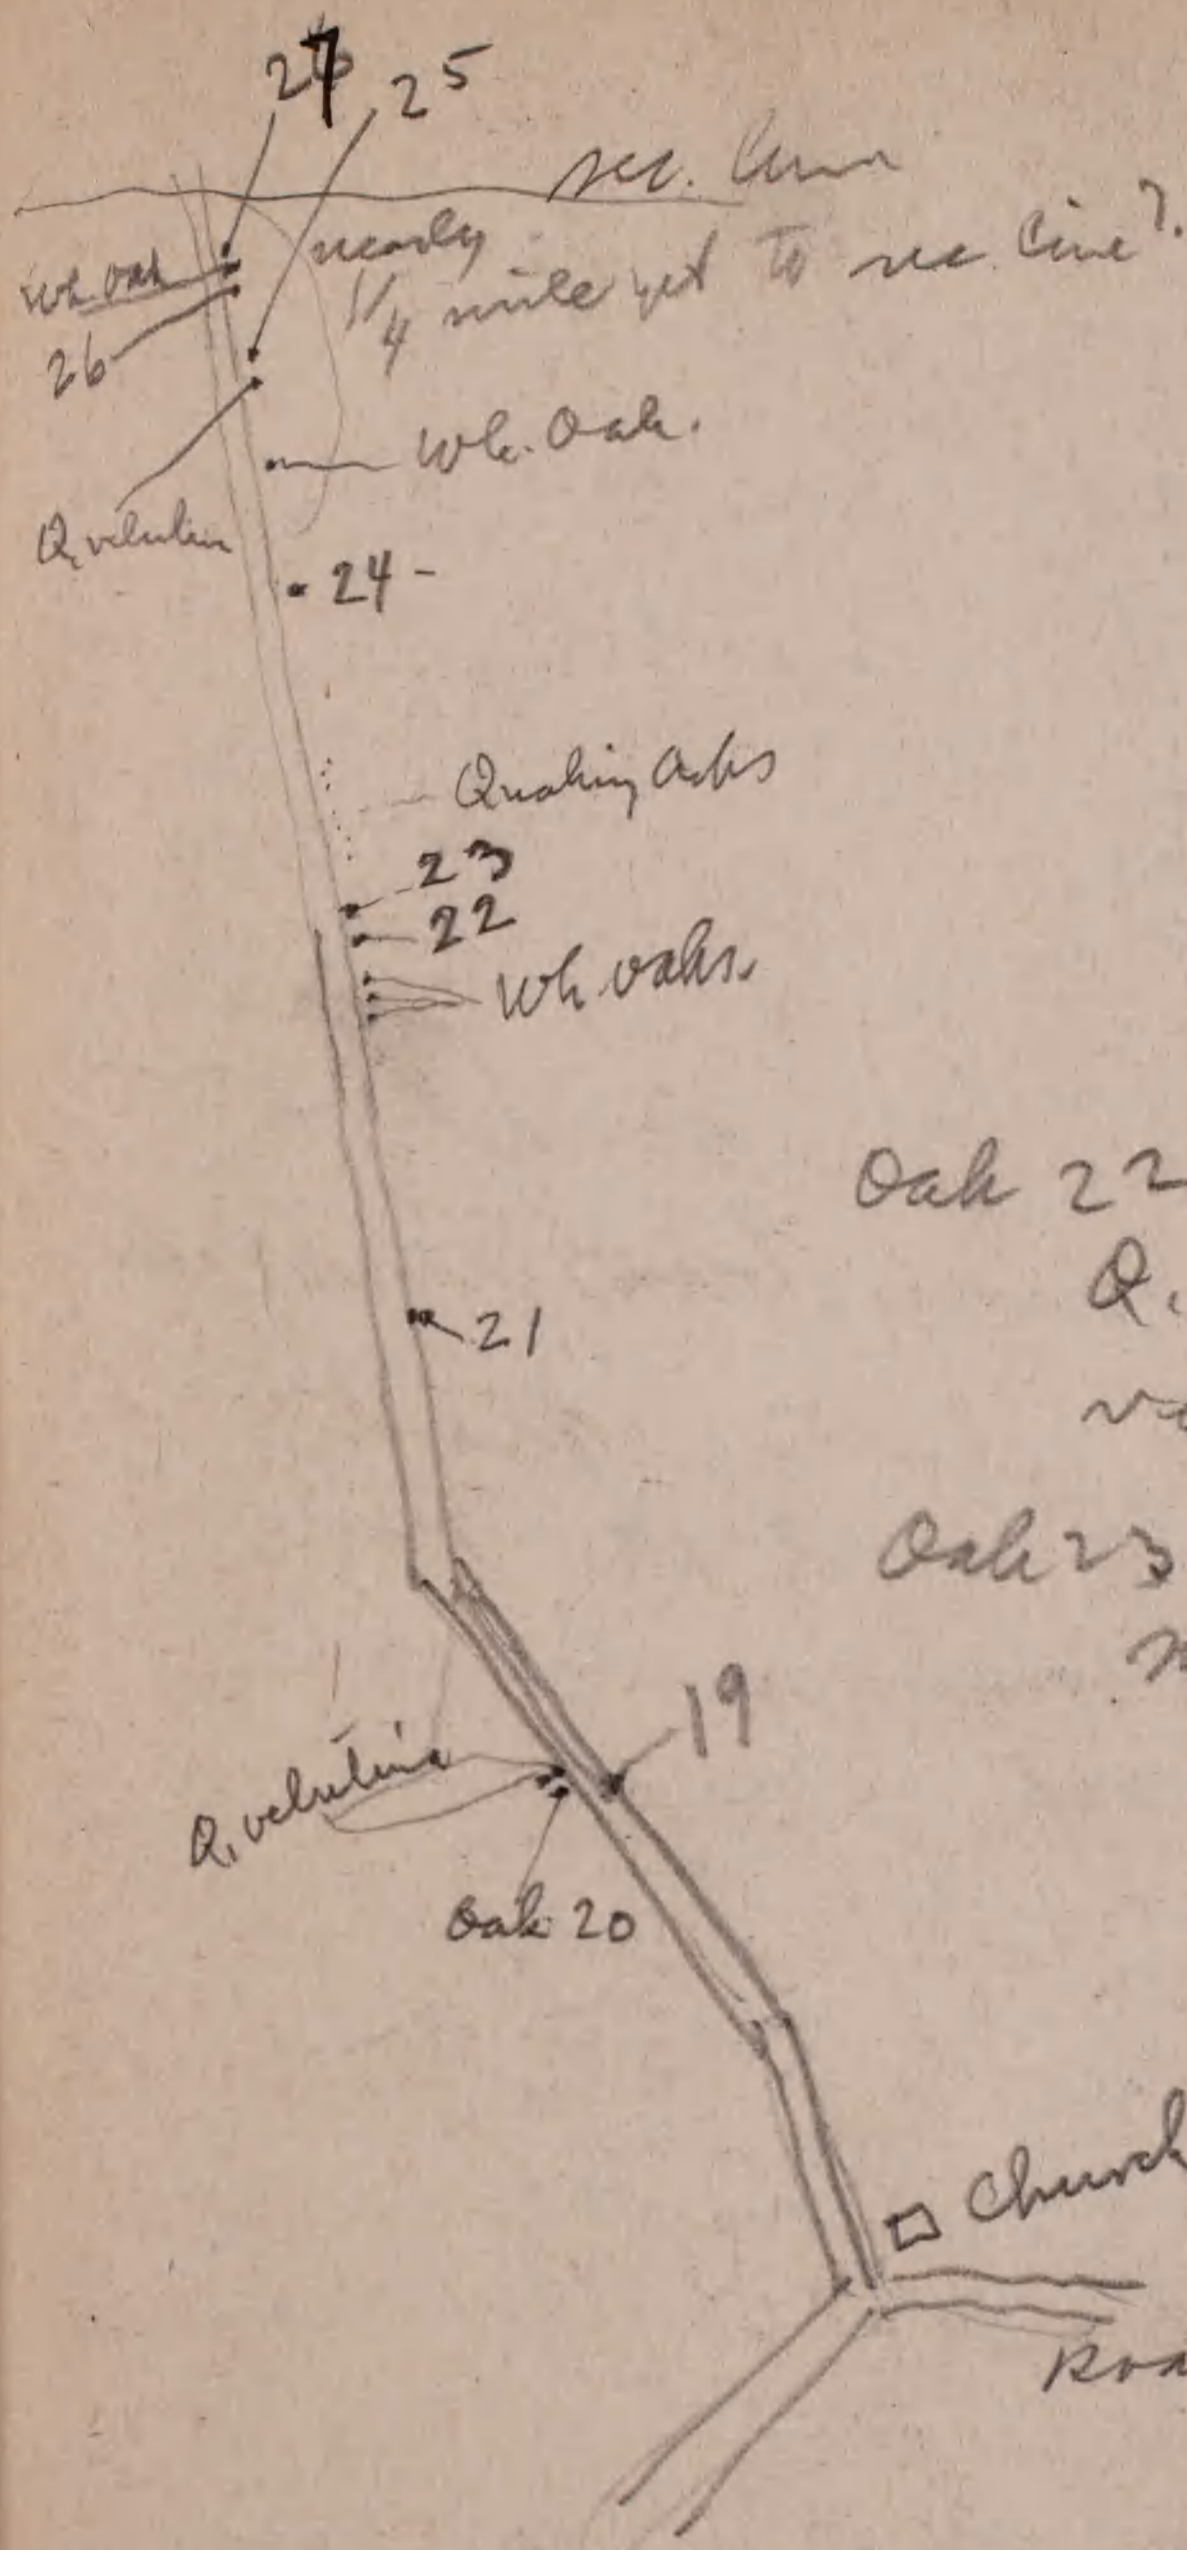 27 25
sec. line
nearly
1/4 mile yet to sec. line?
Wh. Oak
26
Wh. Oak.
Q. velutina
24 -
Quaking Asps
23
22
Wh oaks.
Oak 22
Q.
21
Oak 23
19
Q. velutina
Oak 20
Church
Roa